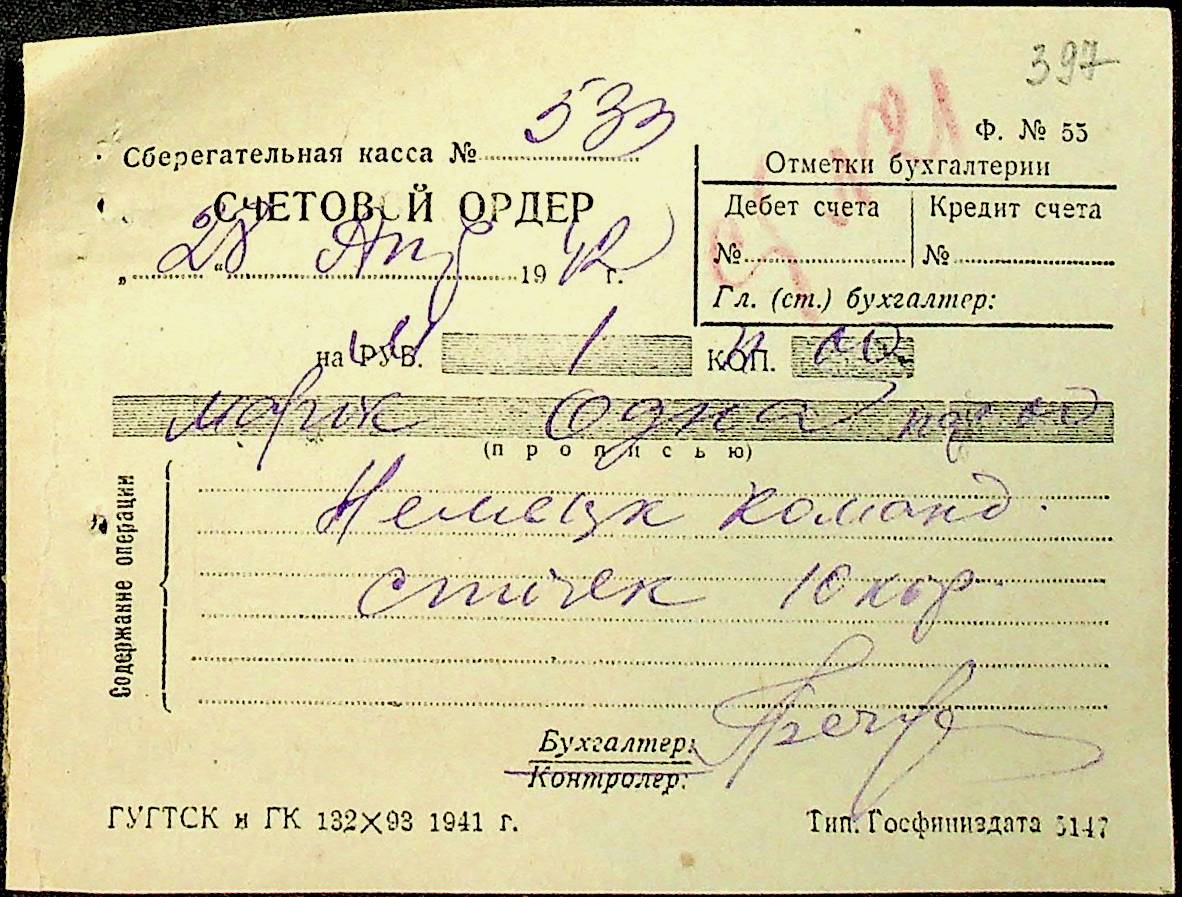 397
Ф. № 55
Сберегательная касса № 533
СЧЕТОВОЙ ОРДЕР
„ 28 “ Апр 1942 г.
Отметки бухгалтерии
Дебет счета Кредит счета
№ №
Гл. (ст.) бухгалтер:
на РУБ. 1 КОП. 00
марок Одна 00
(прописью)
Содержание операции
Немецк команд.
спичек 10 кор.
Бухгалтер:
Контролер:
ГУГТСК и ГК 132×93 1941 г. Тип. Госфиниздата 5147